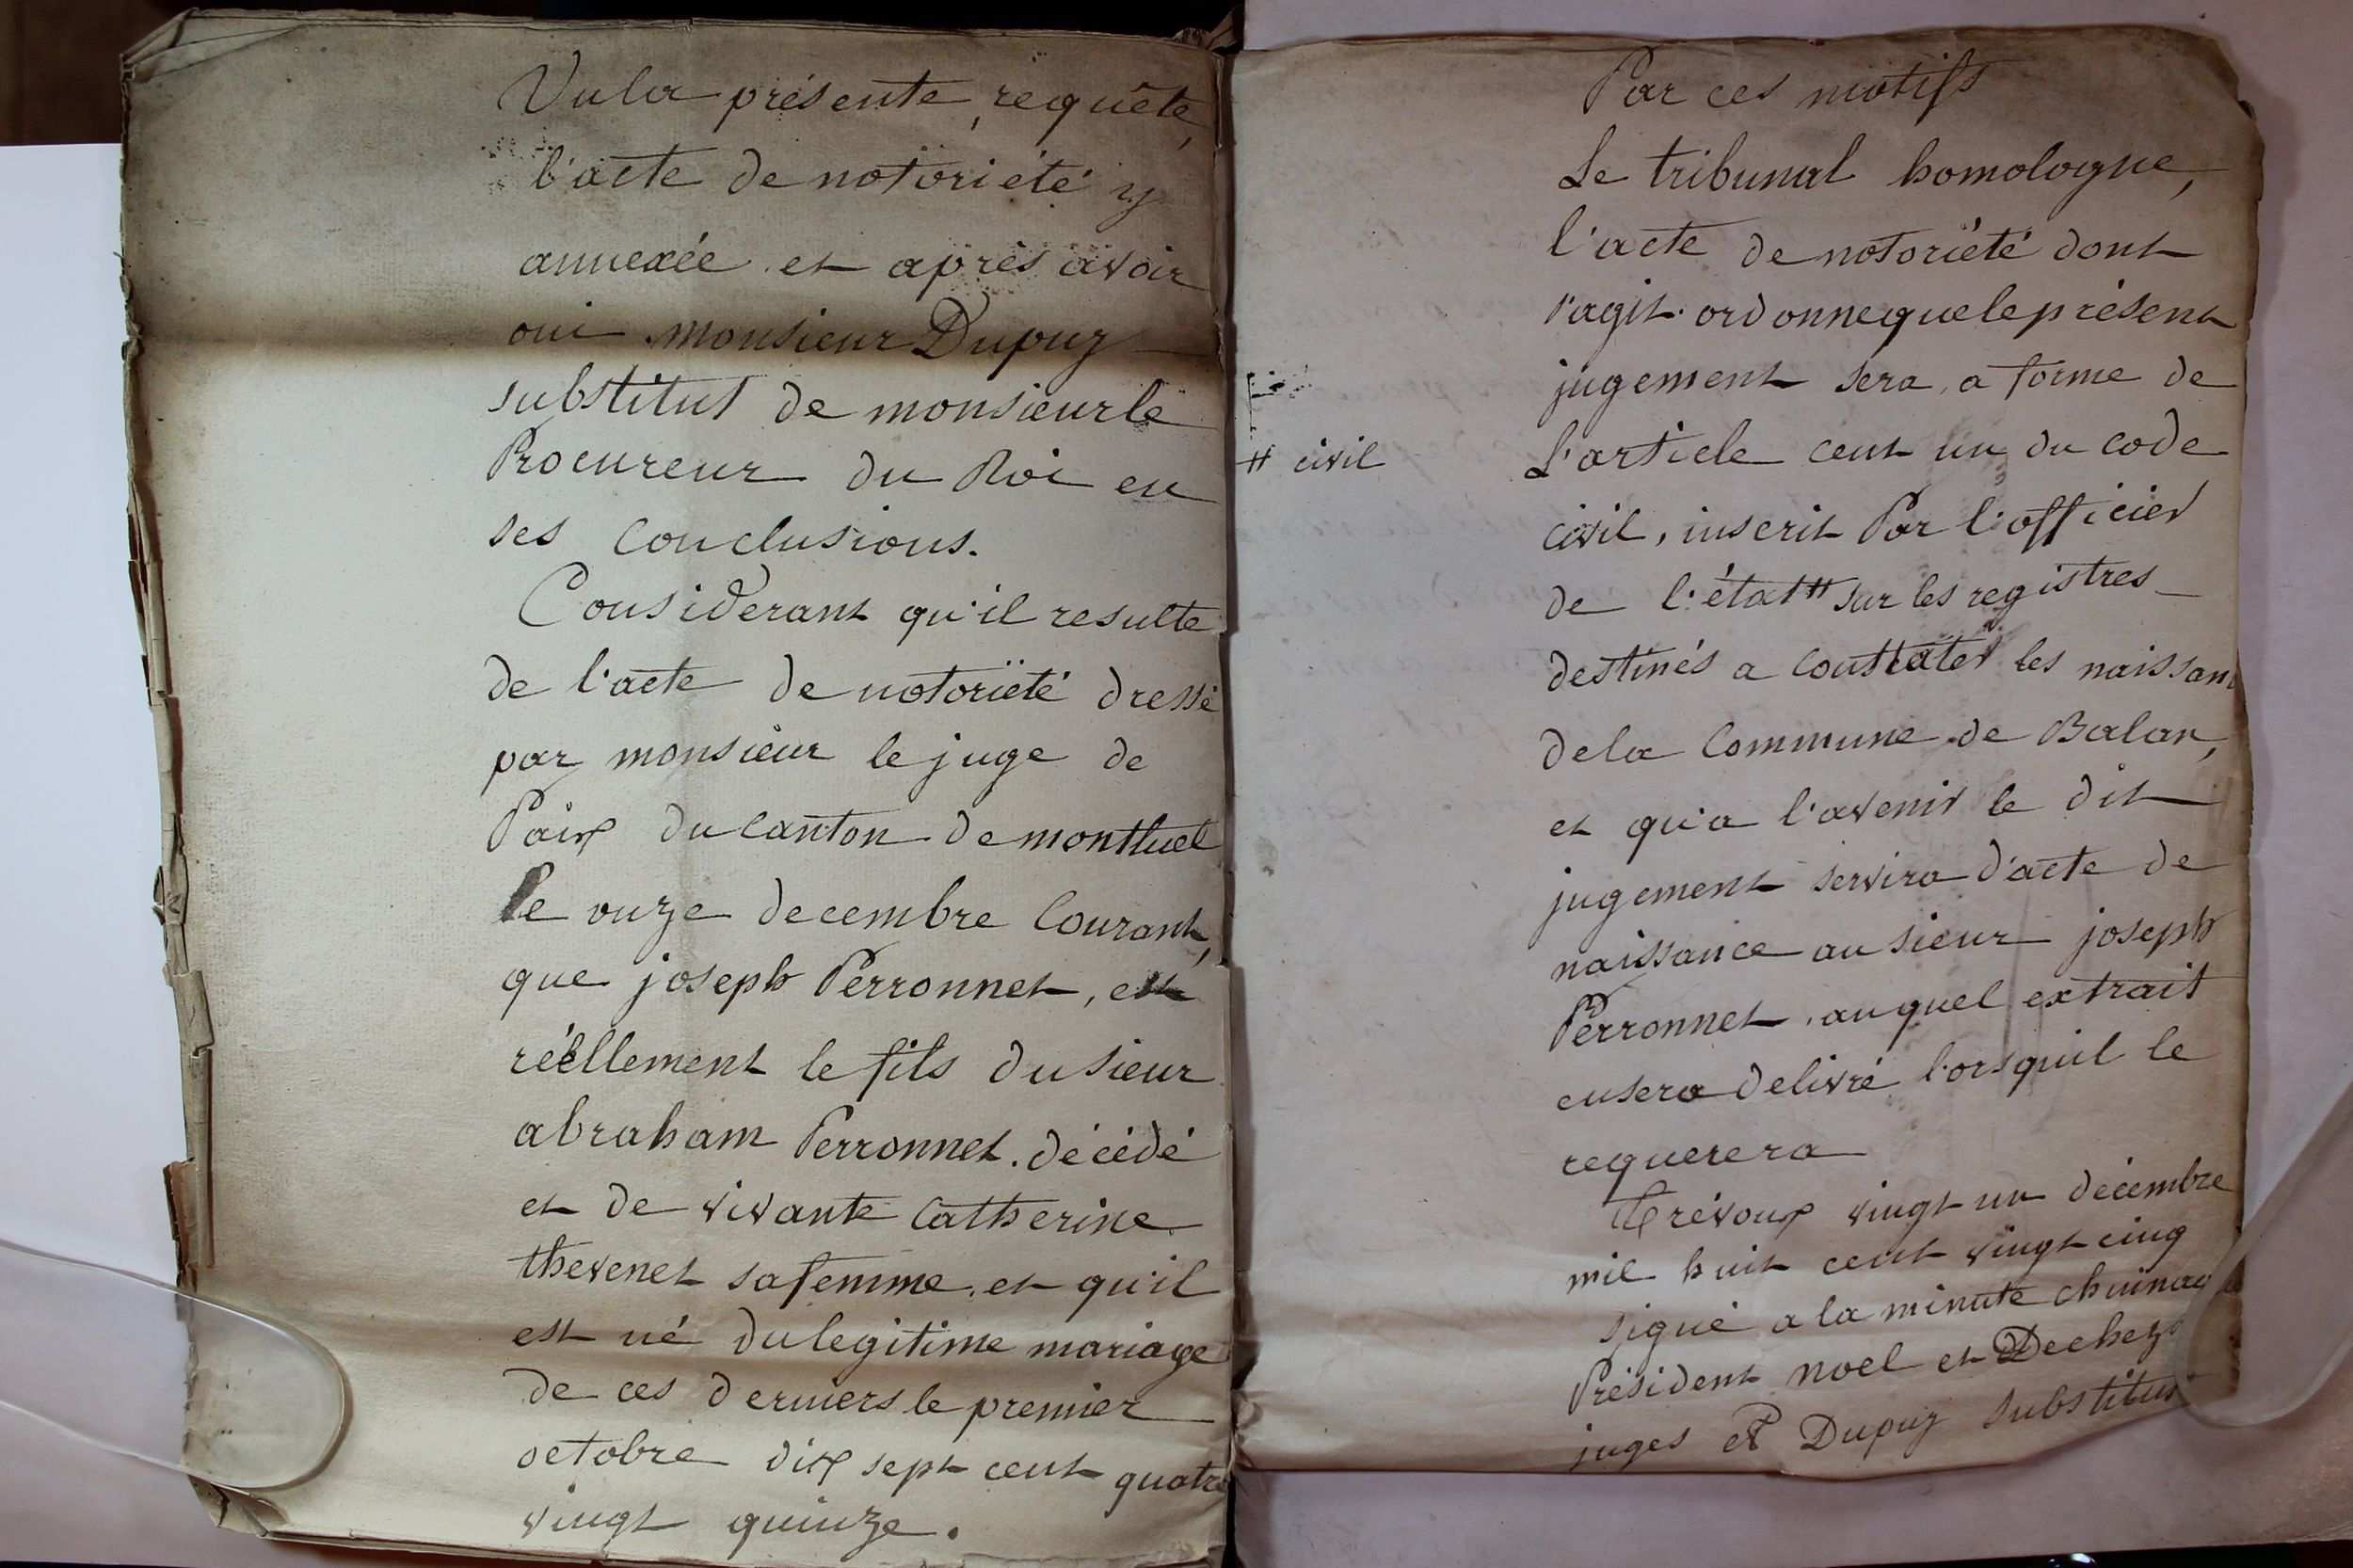 Vu la présente requête,
l'acte de notoriété y
annexée et après avoir
oui monsieur Dupuy
substitut de monsieur le
Procureur du Roi en
ses conclusions.
Considerant qu'il resulte
de l'acte de notoriété dressé
par monsieur le juge de
Paix du canton de montluel
le onze decembre courant,
que joseph Perronnet, est
réellement le fils du sieur
abraham Perronnet. décédé
et de vivante Catherine
thevenet sa femme. et qu'il
est né du legitime mariage
de ces derniers le premier
octobre dix sept cent quatre
vingt quinze.
Par ces motifs
Le tribunal homologue,
l'acte de notoriété dont
s'agit. ordonne que le présent
jugement sera, a forme de
L'article cent un du code
civil, inscrit Par l'officier
# civil
de l'état # sur les registres
destinés a constater les naissan
de la Commune de Balan,
et qu'a l'avenir le dit
jugement servira d'acte de
naissance au sieur joseph
Perronnet. auquel extrait
en sera delivré lorsquil le
requerera
Trévoux vingt un décembre
mil huit cent vingt cinq
signé a la minute
Président noel et
juges et Dupuy substitut